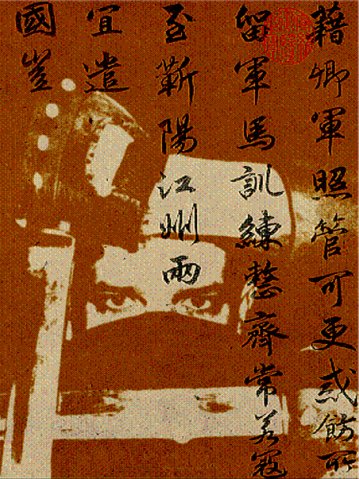 藉卿軍照管可更戒飭所
留軍馬訓練整齊常若寇
至蘄陽江州兩
宜遣
國豈